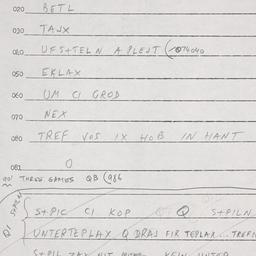 020 BETL
030 TAJX
040 UFS+TELN A PLEUT (-074040
050 EKLAX
060 UM CI GROD
070 NEX
080 TREF VOS IX HOB IN HANT
081 O
THREE GAMES QB (986
S+PIC CI KOP Q S+PILN
UNTERTEPLAX Q DRAJ FIR TEPLAX.. TREFN
S+PIL TAX MIT KEIN UNTER